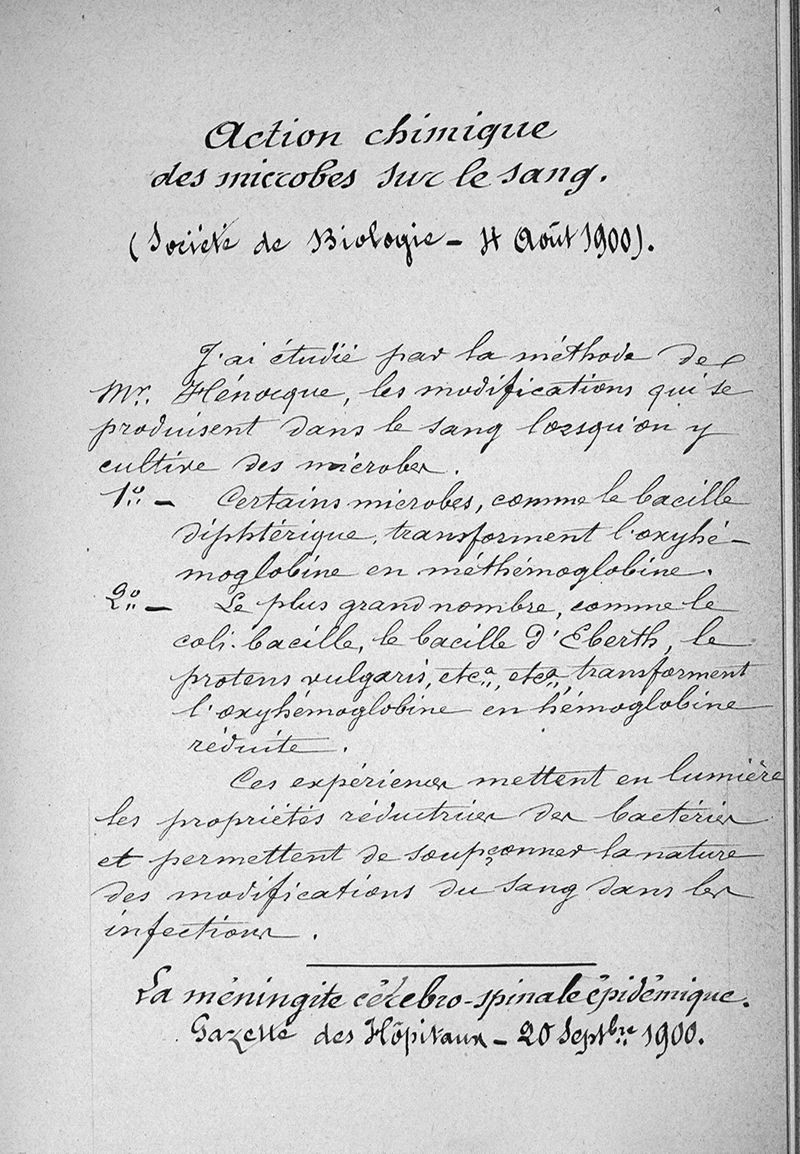 Action chimique
des microbes sur le sang.
(Société de Biologie - 4 Août 1900).
J'ai étudié par la méthode de
Mr. Hénocque, les modifications qui se
produisent dans le sang lorsqu'on y
cultive des microbes.
1o. - Certains microbes, comme le bacille
diphtérique, transforment l'oxyhé-
moglobine en méthémoglobine.
2o. - Le plus grand nombre, comme le
coli-bacille, le bacille d'Eberth, le
protens vulgaris, etca, etca, transforment
l'oxyhémoglobine en hémoglobine
réduite.
Ces expériences mettent en lumière
les propriétés réductrices des bactéries
et permettent de soupçonner la nature
des modifications du sang dans les
infections.
La méningite cérébro-spinale épidémique.
Gazette des Hôpitaux - 20 Septbre 1900.